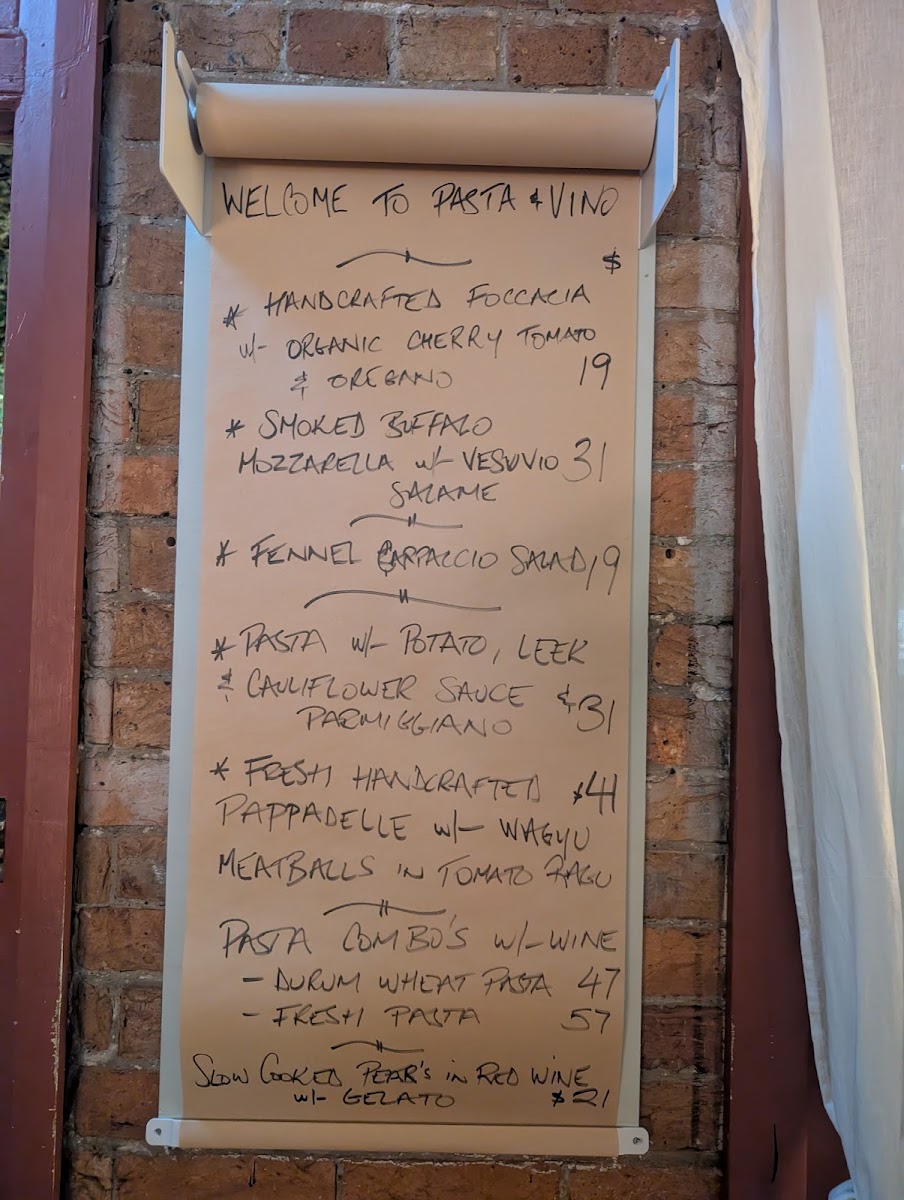 WELCOME TO PASTA & VINO
$
* HANDCRAFTED FOCCACIA
w/- ORGANIC CHERRY TOMATO
& OREGANO 19
* SMOKED BUFFALO
MOZZARELLA w/- VESUVIO 31
SALAME
* FENNEL CARPACCIO SALAD 19
* PASTA w/- POTATO, LEEK
& CAULIFLOWER SAUCE &
PARMIGGIANO 31
* FRESH HANDCRAFTED $41
PAPPADELLE w/- WAGYU
MEATBALLS IN TOMATO RAGU
PASTA COMBO'S w/- WINE
- DURUM WHEAT PASTA 47
- FRESH PASTA 57
SLOW COOKED PEAR'S IN RED WINE
w/- GELATO $21